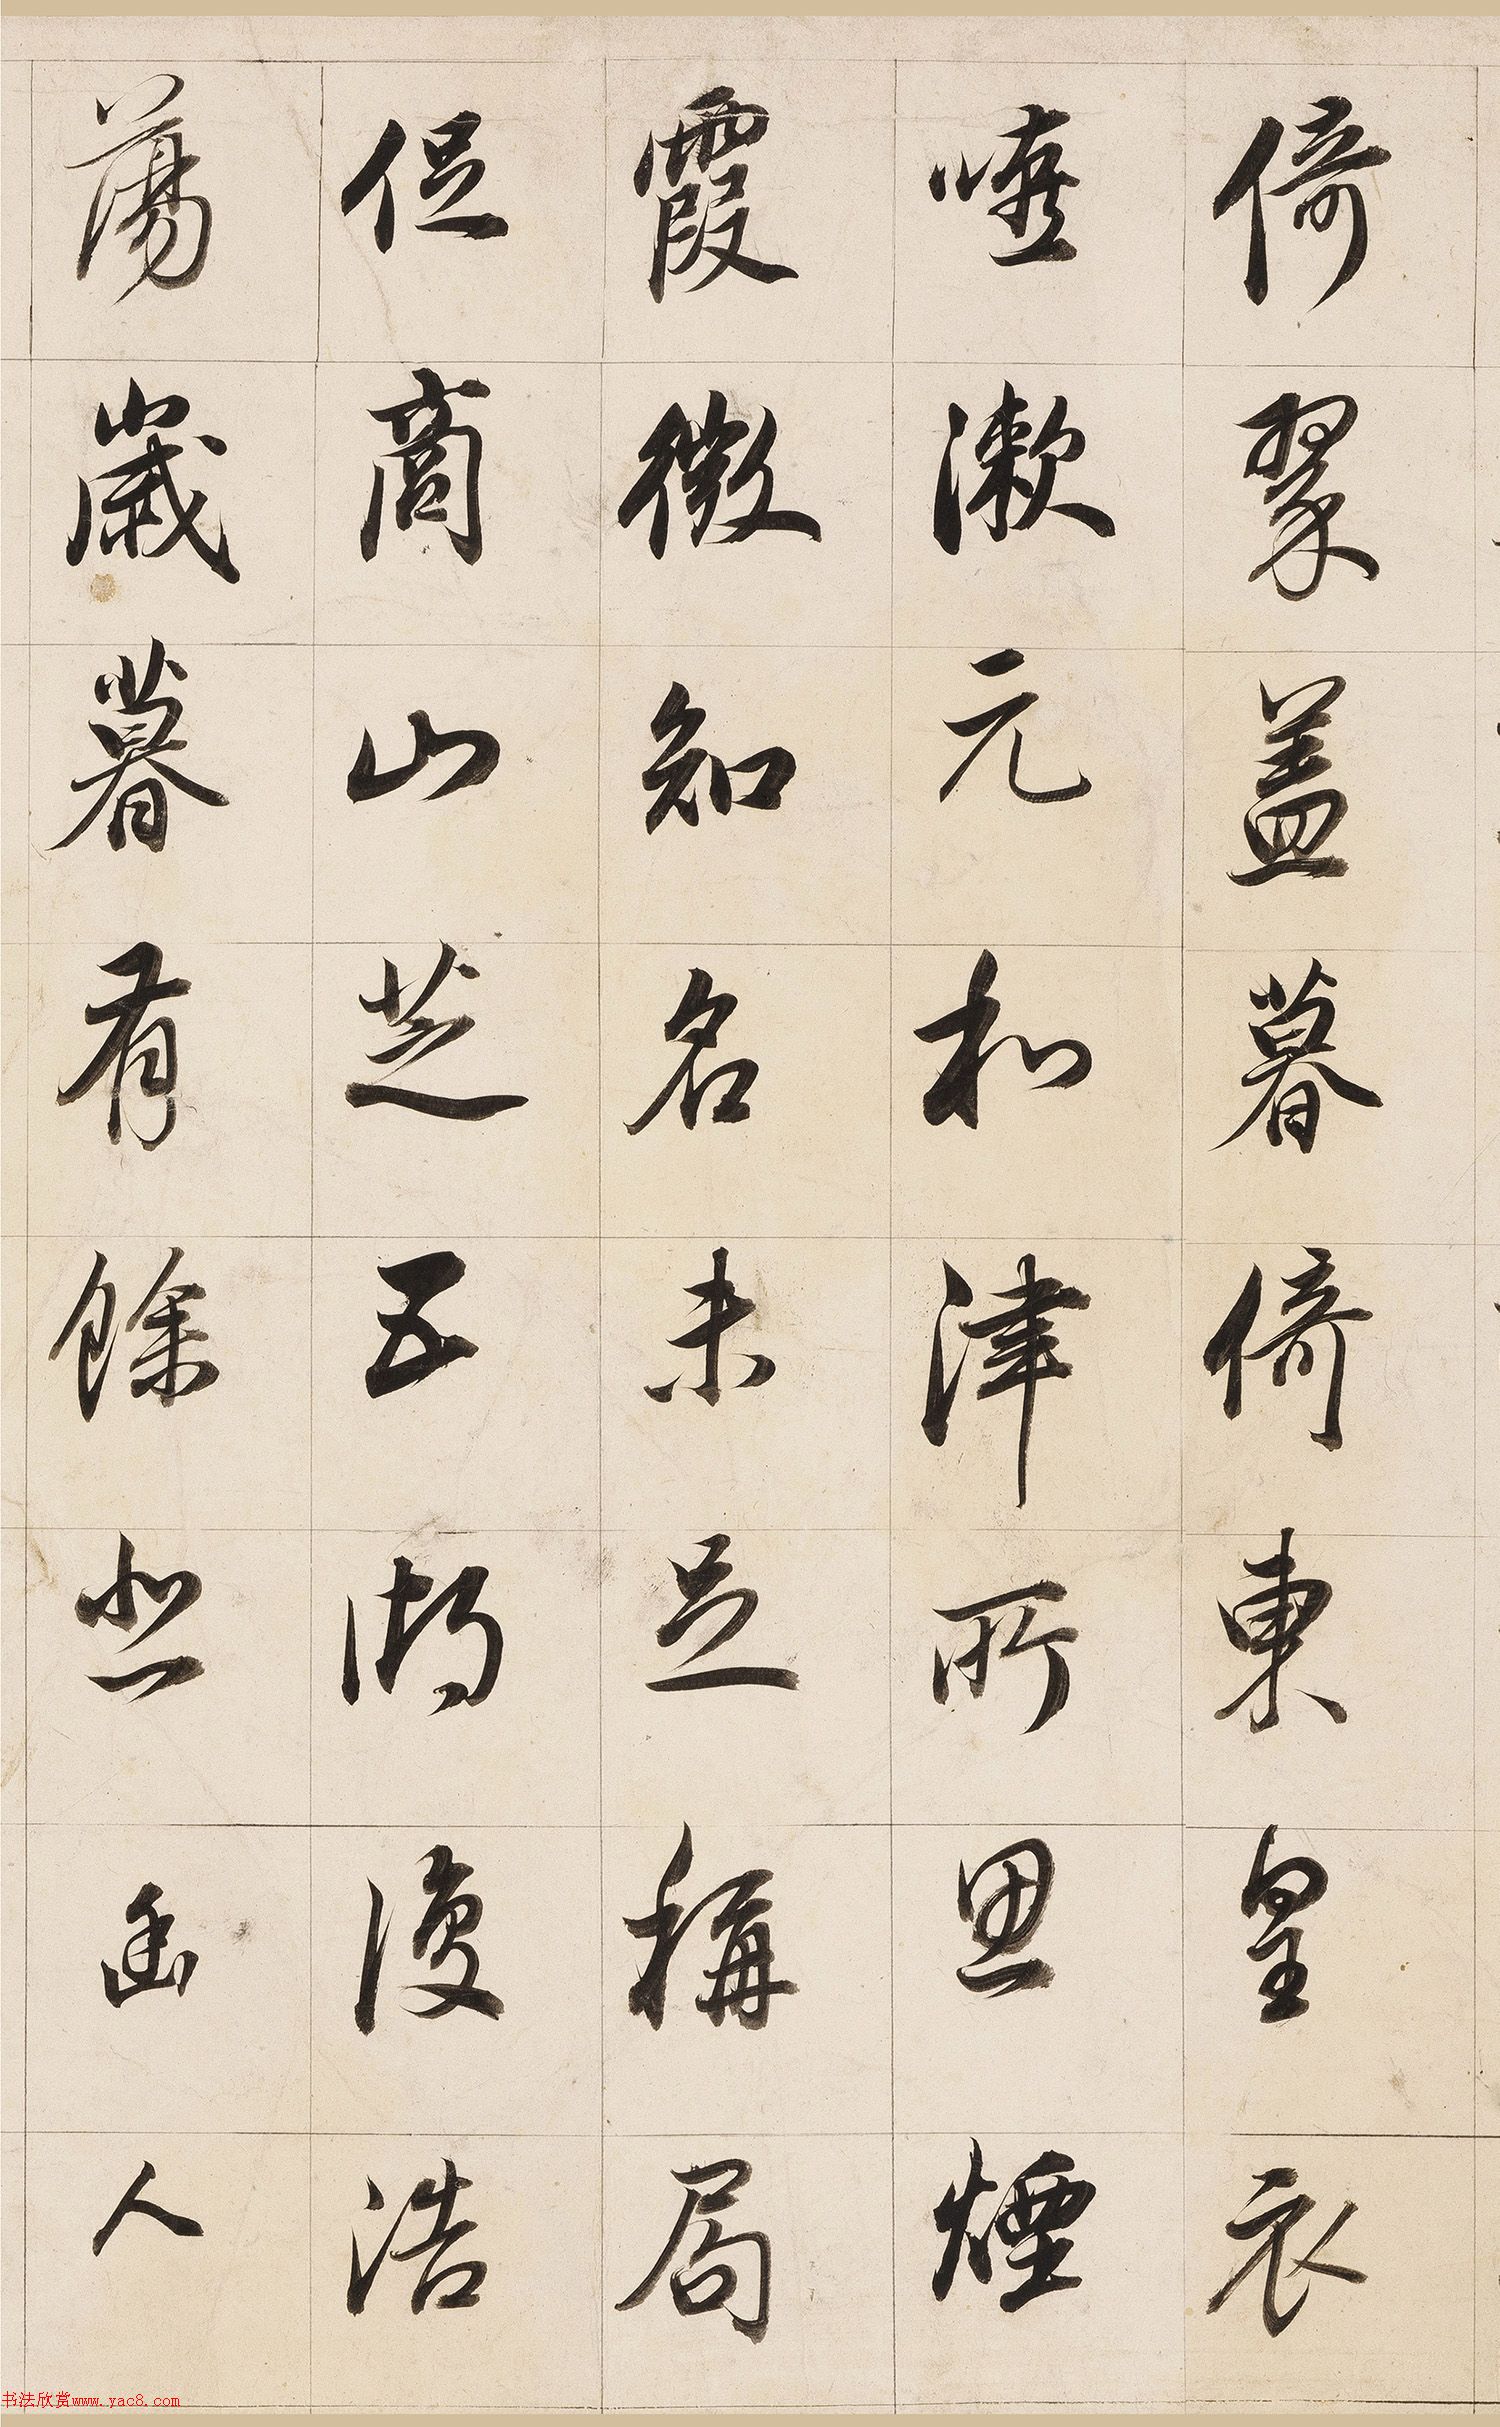 倚翠蓋暮倚東皇衣
嚥漱元和津所思煙
霞微知名未足稱局
促商山芝五湖復浩
蕩歲暮有餘悲幽人
书法欣赏www.yac8.com